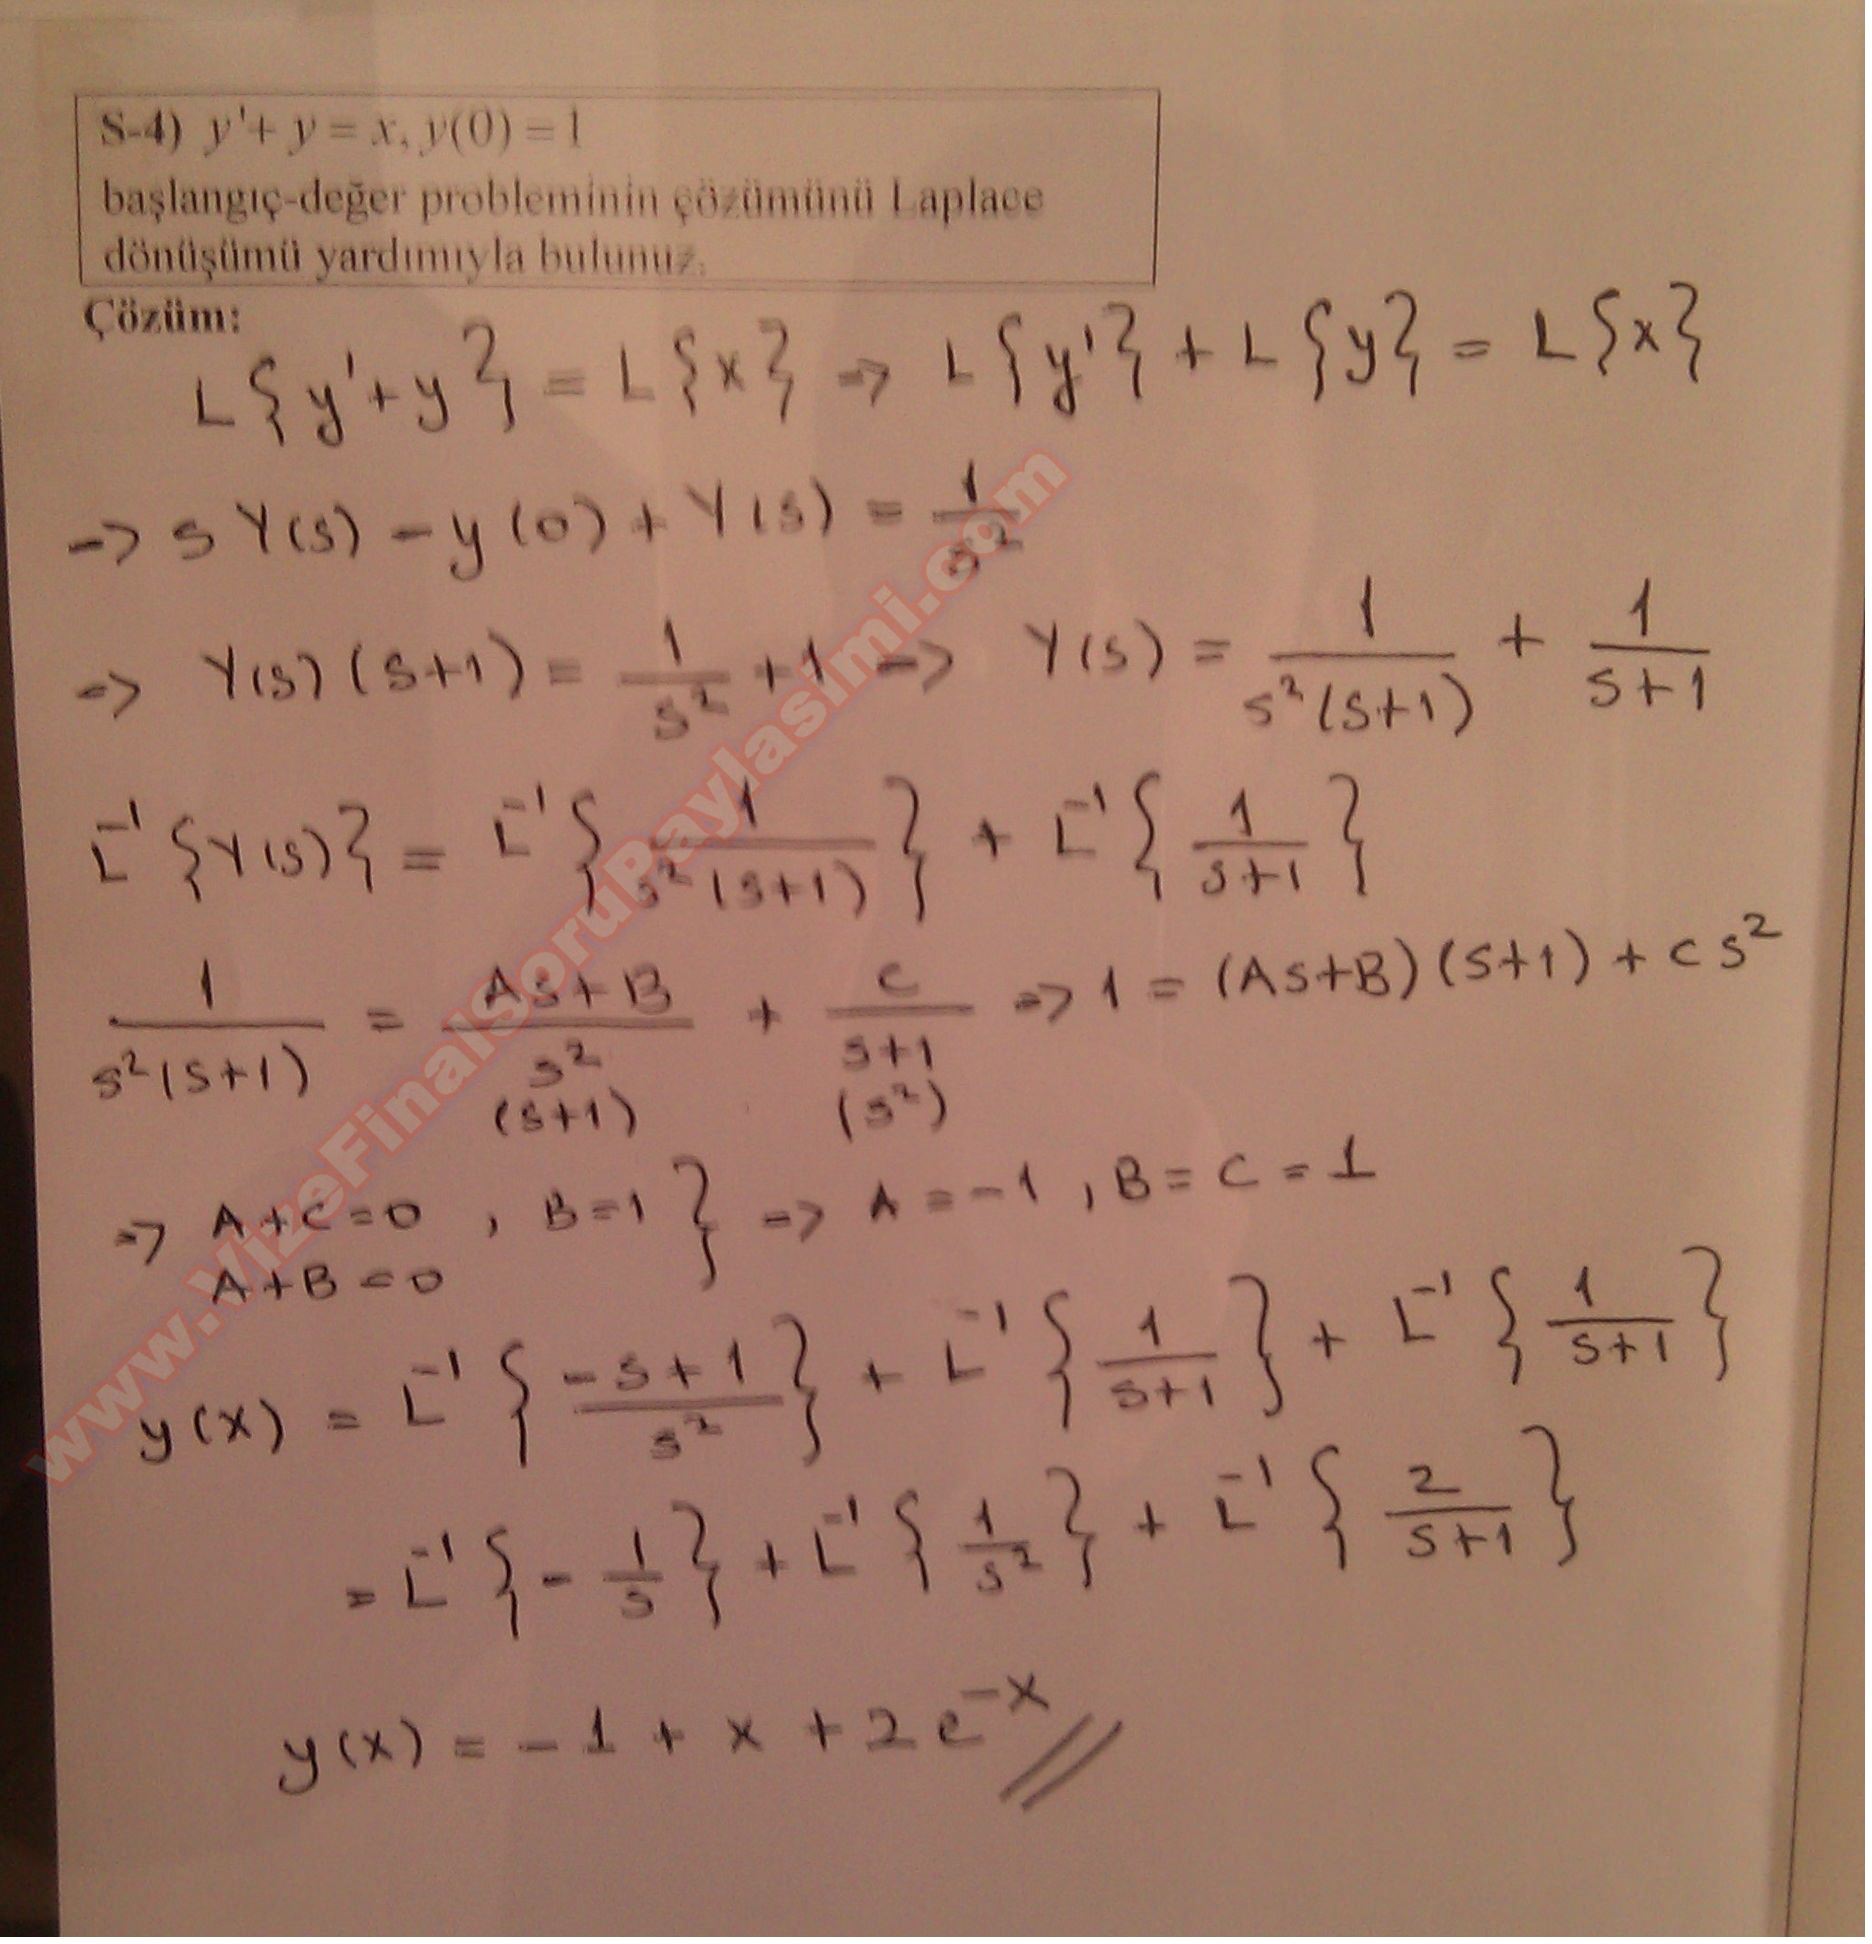 S-4) y'+ y = x, y(0) = 1
başlangıç-değer probleminin çözümünü Laplace
dönüşümü yardımıyla bulunuz.
Çözüm:
L{y'+y} = L{x} => L{y'} + L{y} = L{x}
=> s Y(s) - y(0) + Y(s) = 1/s²
=> Y(s)(s+1) = 1/s² + 1 => Y(s) = 1/(s²(s+1)) + 1/(s+1)
L⁻¹{Y(s)} = L⁻¹{1/(s²(s+1))} + L⁻¹{1/(s+1)}
1/(s²(s+1)) = (As+B)/s² + C/(s+1) => 1 = (As+B)(s+1) + Cs²
(s+1) (s²)
=> A+C=0 , B=1 } => A=-1 , B=C=1
A+B=0
y(x) = L⁻¹{(-s+1)/s²} + L⁻¹{1/(s+1)} + L⁻¹{1/(s+1)}
= L⁻¹{-1/s} + L⁻¹{1/s²} + L⁻¹{2/(s+1)}
y(x) = -1 + x + 2e⁻ˣ //
www.VizeFinalSoruPaylasimi.com